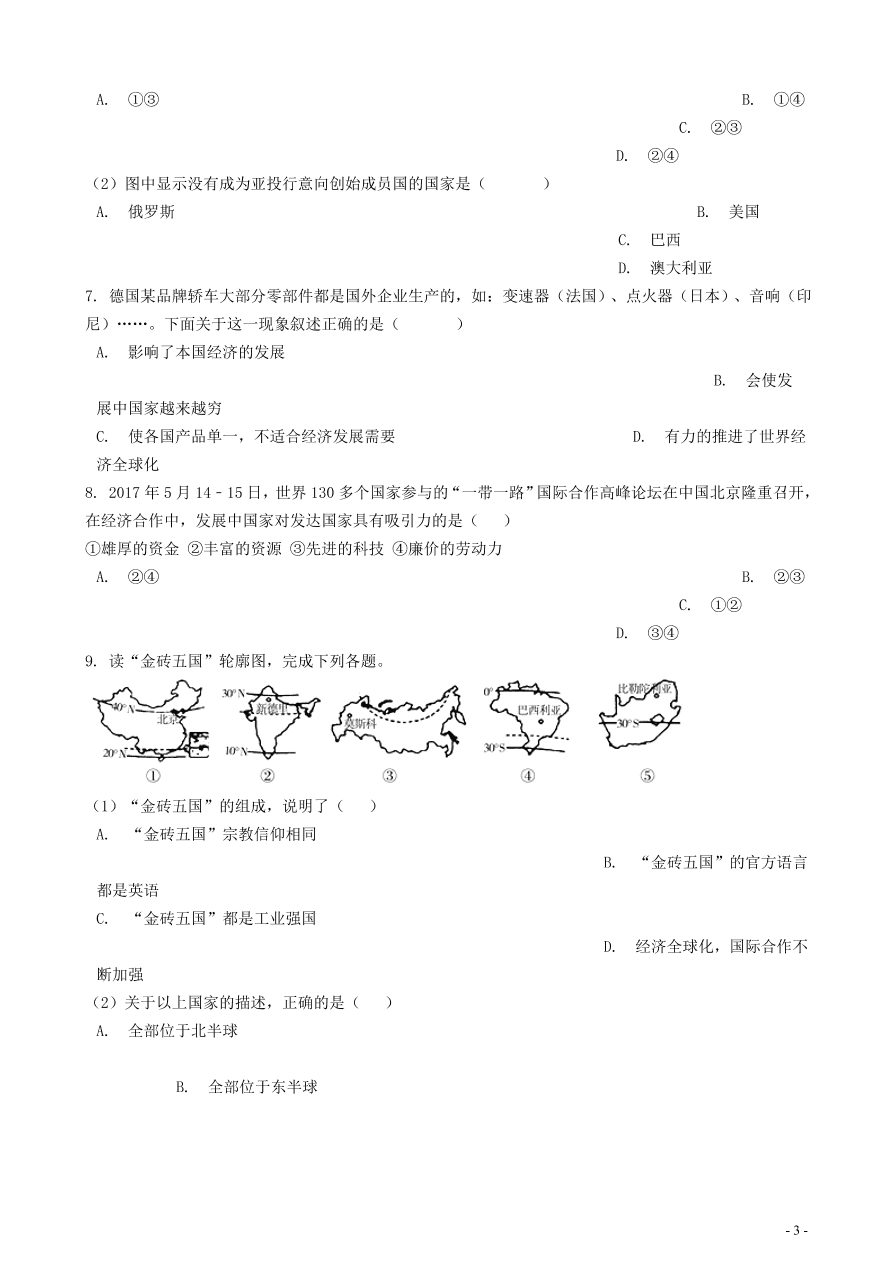 A. ①③ B. ①④
C. ②③
D. ②④
（2）图中显示没有成为亚投行意向创始成员国的国家是（ ）
A. 俄罗斯 B. 美国
C. 巴西
D. 澳大利亚
7. 德国某品牌轿车大部分零部件都是国外企业生产的，如：变速器（法国）、点火器（日本）、音响（印
尼）……。下面关于这一现象叙述正确的是（ ）
A. 影响了本国经济的发展
B. 会使发
展中国家越来越穷
C. 使各国产品单一，不适合经济发展需要 D. 有力的推进了世界经
济全球化
8. 2017 年 5 月 14﹣15 日，世界 130 多个国家参与的“一带一路”国际合作高峰论坛在中国北京隆重召开，
在经济合作中，发展中国家对发达国家具有吸引力的是（ ）
①雄厚的资金 ②丰富的资源 ③先进的科技 ④廉价的劳动力
A. ②④ B. ②③
C. ①②
D. ③④
9. 读“金砖五国”轮廓图，完成下列各题。
40°N 北京 20°N ①
30°N 新德里 10°N ②
莫斯科 ③
0° 巴西利亚 30°S ④
比勒陀利亚 30°S ⑤
（1）“金砖五国”的组成，说明了（ ）
A. “金砖五国”宗教信仰相同
B. “金砖五国”的官方语言
都是英语
C. “金砖五国”都是工业强国
D. 经济全球化，国际合作不
断加强
（2）关于以上国家的描述，正确的是（ ）
A. 全部位于北半球
B. 全部位于东半球
- 3 -